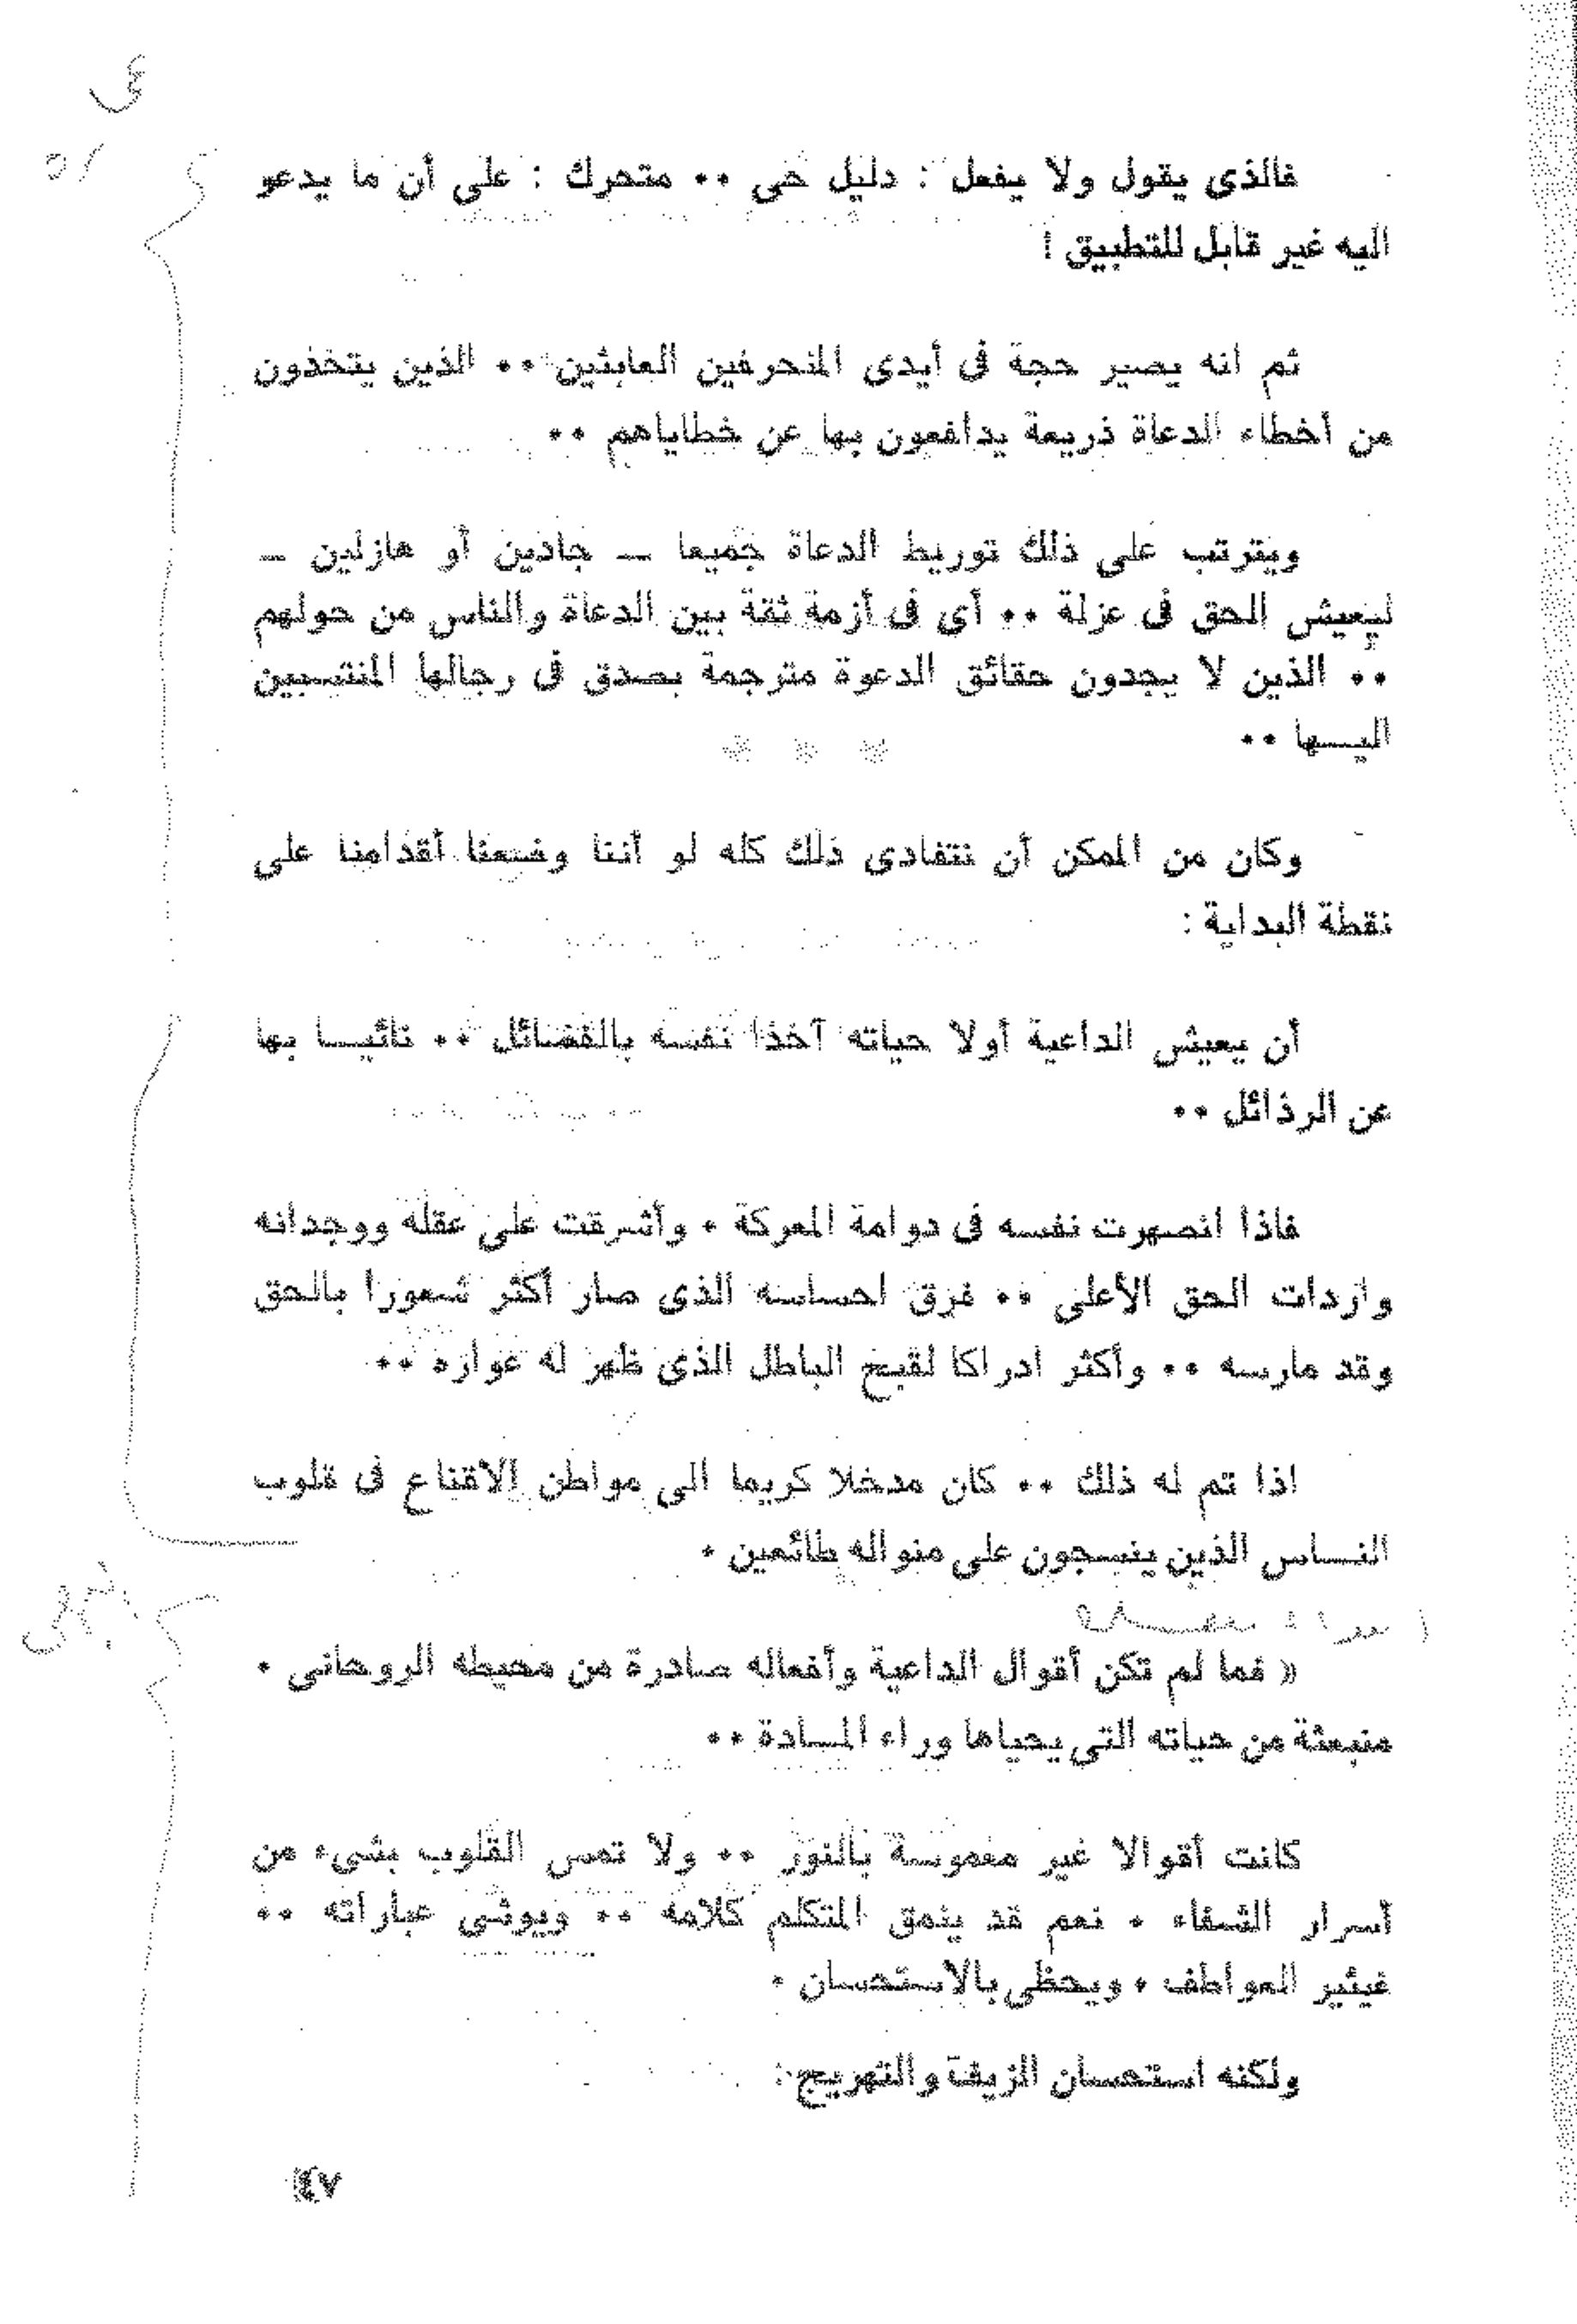 فالذى يقول ولا يفعل : دليل حى ٠٠ متحرك : على أن ما يدعو
اليه غير قابل للتطبيق !
ثم انه يصير حجة فى أيدى المنحرفين العابثين ٠٠ الذين يتخذون
من أخطاء الدعاة ذريعة يدافعون بها عن خطاياهم ٠٠
ويترتب على ذلك توريط الدعاة جميعا — جادين أو هازلين —
ليعيش الحق فى عزلة ٠٠ أى فى أزمة ثقة بين الدعاة والناس من حولهم
٠٠ الذين لا يجدون حقائق الدعوة مترجمة بصدق فى رجالها المنتسبين
اليها ٠٠
* * *
وكان من الممكن أن نتفادى ذلك كله لو أننا وضعنا أقدامنا على
نقطة البداية :
أن يعيش الداعية أولا حياته آخذا نفسه بالفضائل ٠٠ نائيا بها
عن الرذائل ٠٠
فاذا انصهرت نفسه فى دوامة المعركة ٠ وأشرقت على عقله ووجدانه
واردات الحق الأعلى ٠٠ فرق احساسه الذى صار أكثر شعورا بالحق
وقد مارسه ٠٠ وأكثر ادراكا لقبح الباطل الذى ظهر له عواره ٠٠
اذا تم له ذلك ٠٠ كان مدخلا كريما الى مواطن الاقناع فى قلوب
الناس الذين ينسجون على منواله طائعين ٠
« فما لم تكن أقوال الداعية وأفعاله صادرة من محيطه الروحانى ٠
منبعثة من حياته التى يحياها وراء المادة ٠٠
كانت أقوالا غير مغموسة بالنور ٠٠ ولا تمس القلوب بشىء من
أسرار الشفاء ٠ نعم قد ينمق المتكلم كلامه ٠٠ ويوشى عباراته ٠٠
فيثير العواطف ٠ ويحظى بالاستحسان ٠
ولكنه استحسان الزيف والتهريج :
٤٧